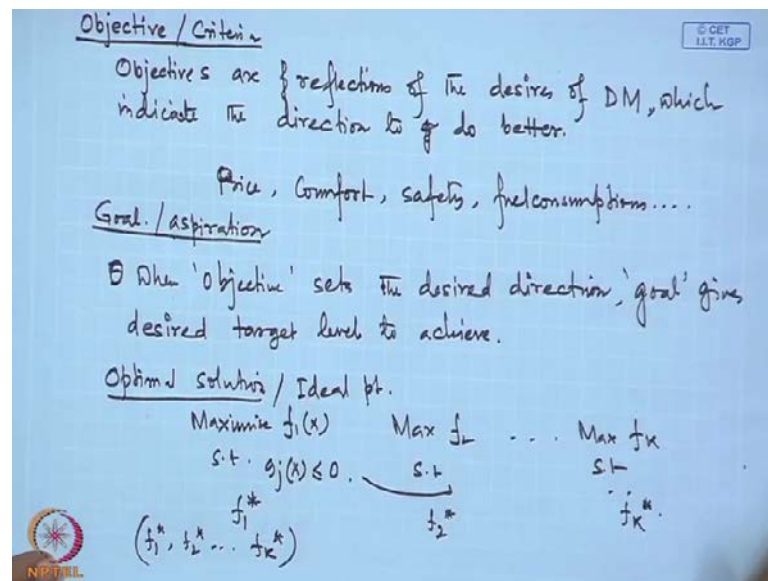 Objective / Criteria
© CET
I.I.T. KGP
Objectives are { reflections of the desires of DM, which
indicate the direction to do better.
Price, Comfort, safety, fuel consumptions....
Goal / aspiration
When 'objective' sets the desired direction, 'goal' gives
desired target level to achieve.
Optimal solution / Ideal pt.
Maximise f₁(x) Max f₂ ... Max fₖ
s.t. gⱼ(x) ≤ 0. s.t s.t
f₁* f₂* .. fₖ*.
(f₁*, f₂* ... fₖ*)
NPTEL